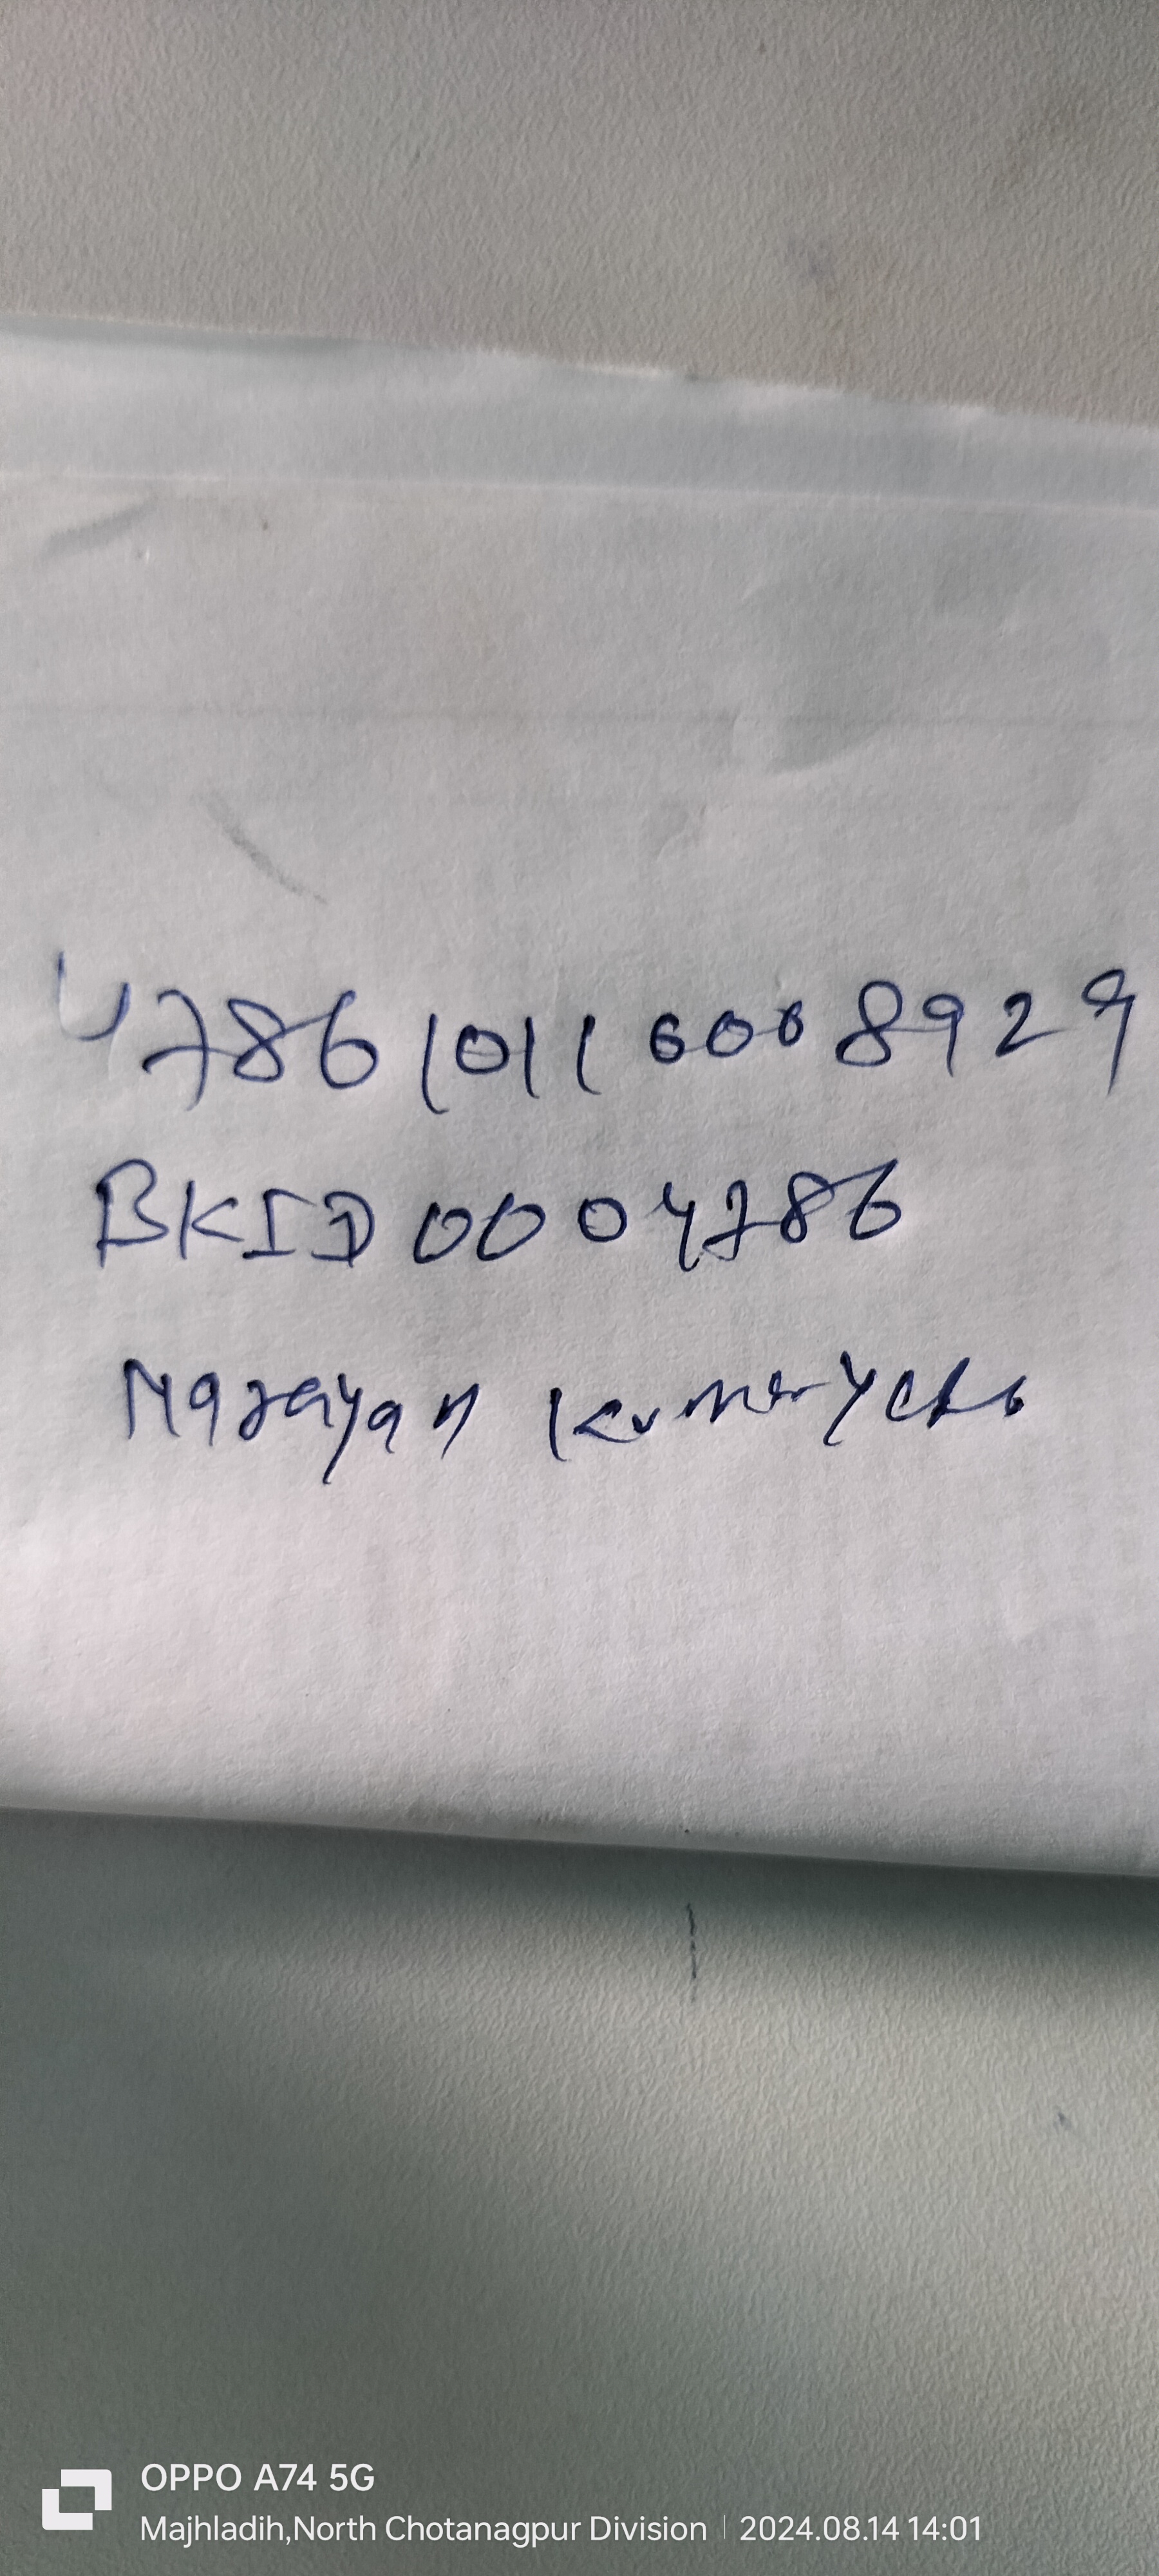 478610116008929
BKID0004786
Narayan Kumar
OPPO A74 5G
Majhladih,North Chotanagpur Division | 2024.08.14 14:01